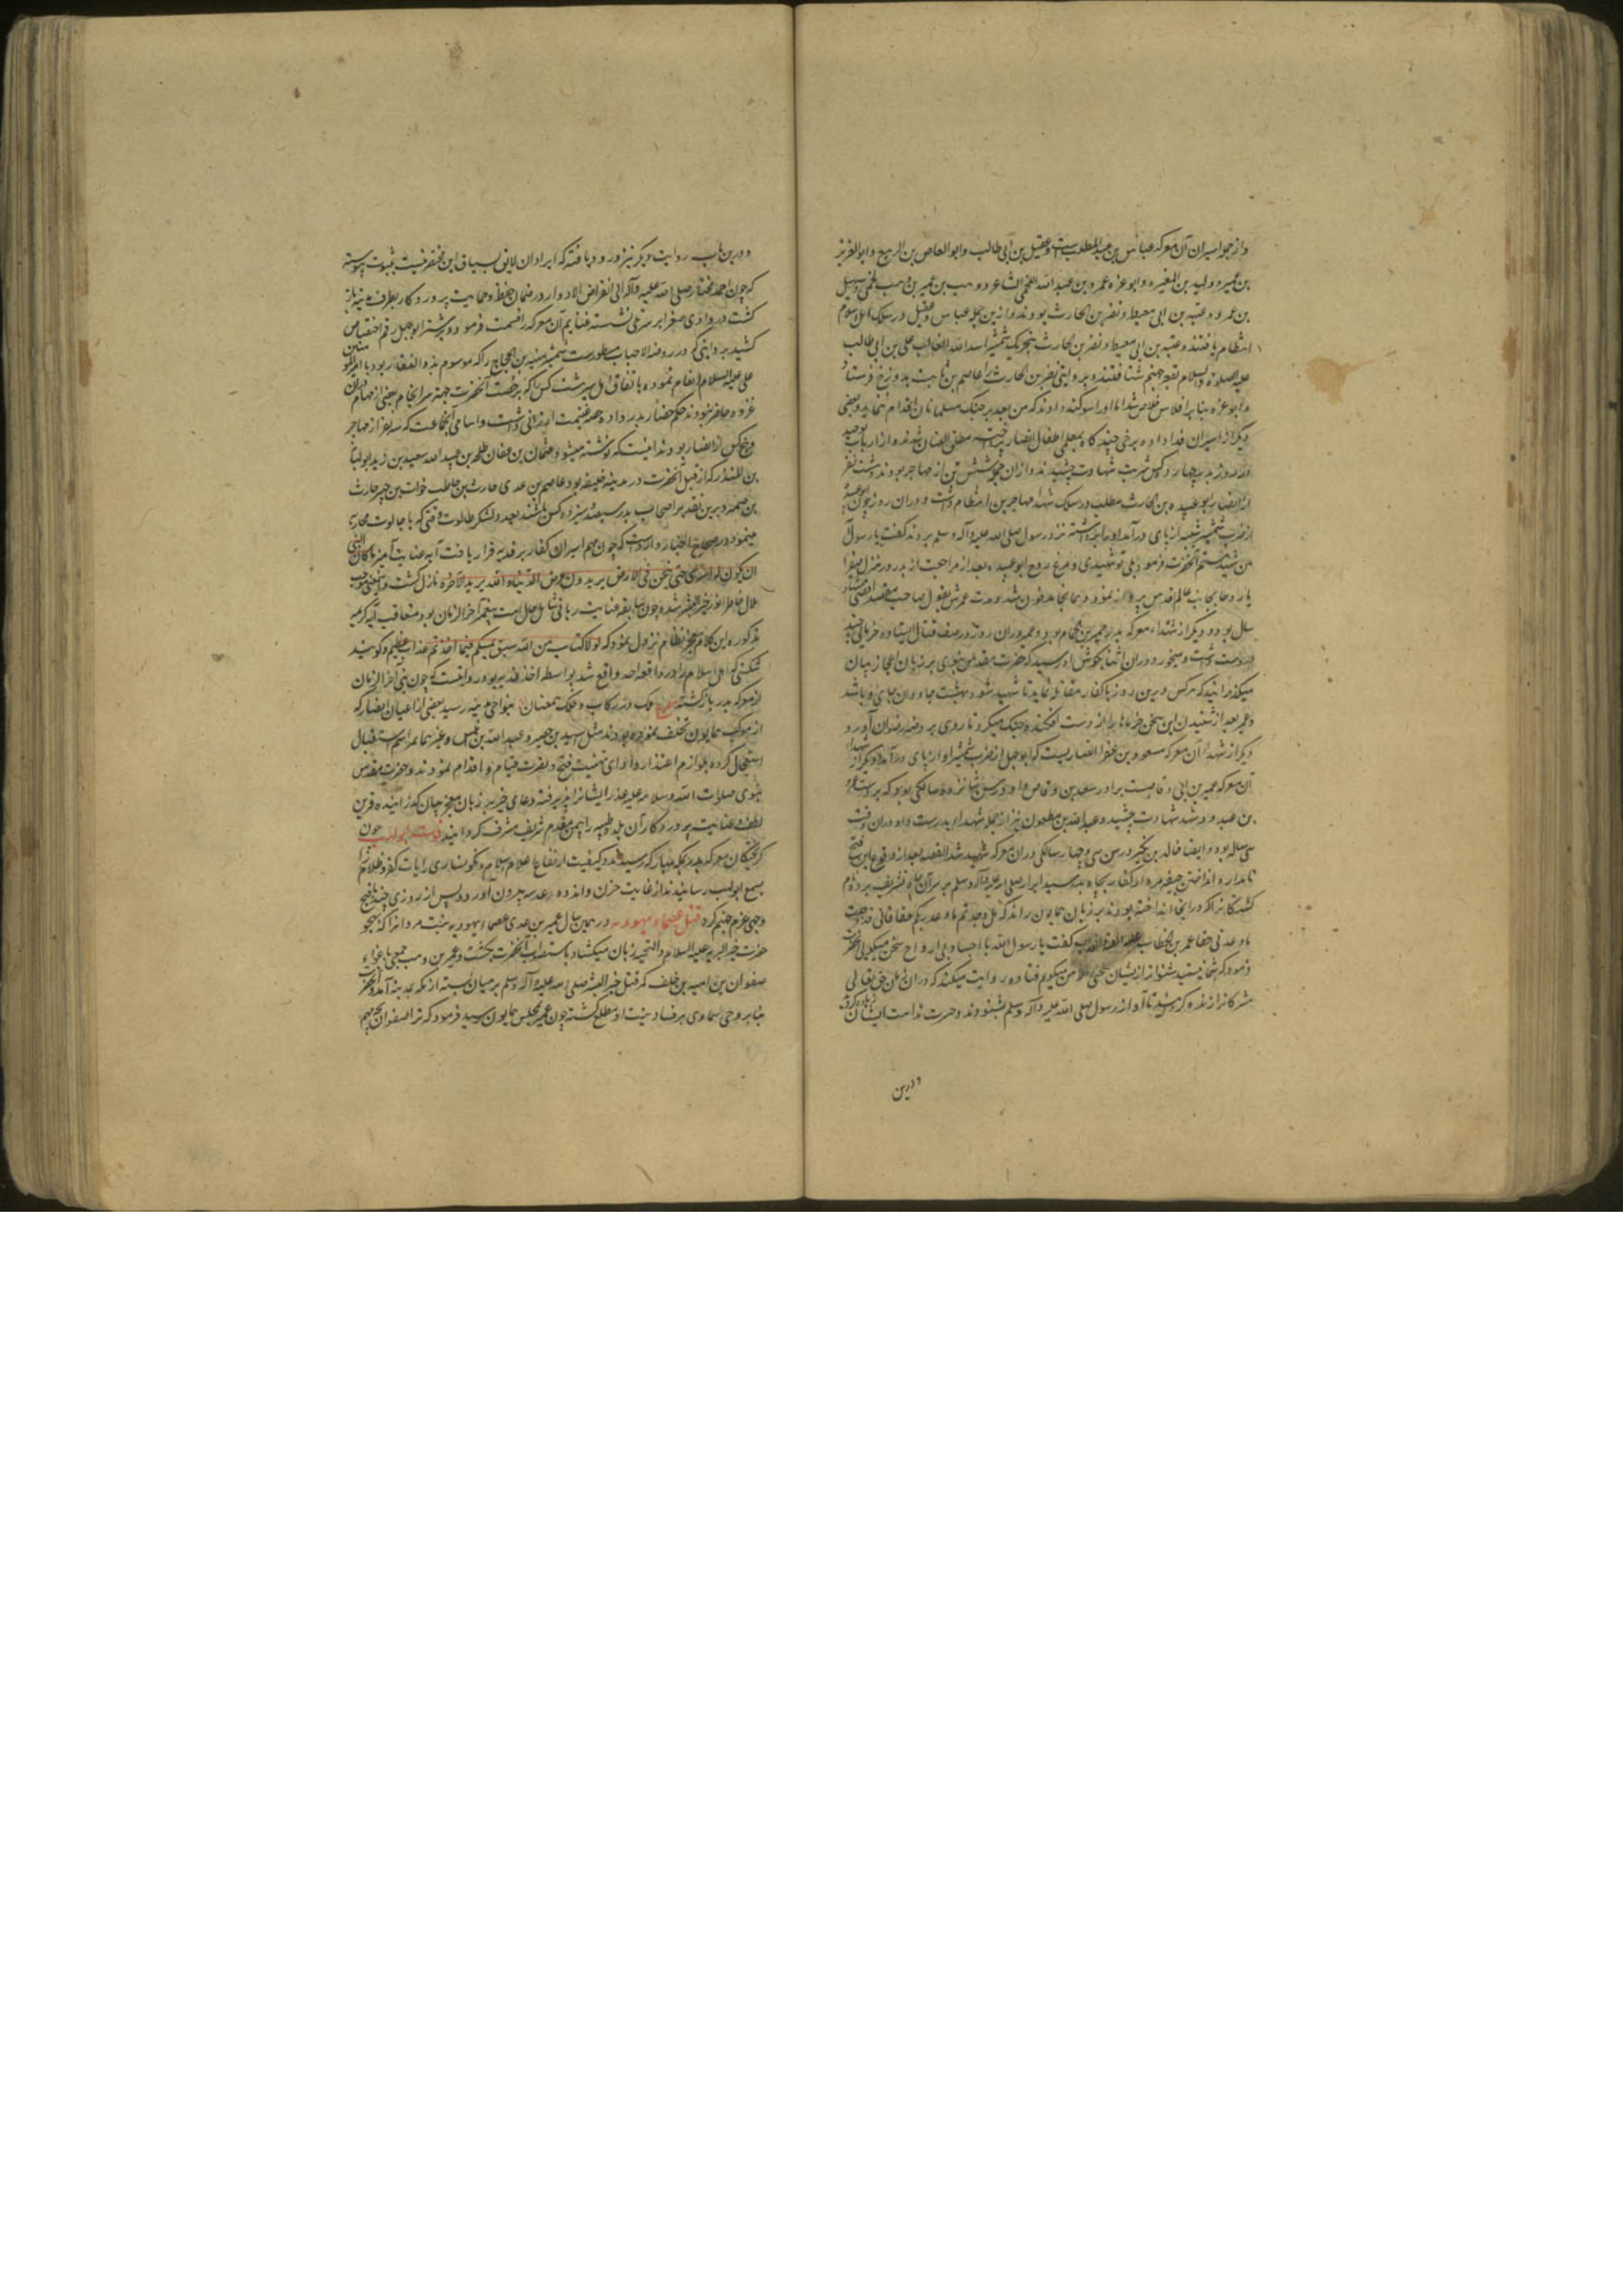 و از جمله اسیران آن معرکه عباس بن عبد المطلب است و عقیل بن ابی طالب و ابو العاص بن الربیع و ابو العزیز
بن عمیر و ولید بن المغیره و ابو عزه عمرو بن عبد الله الجمحی الشاعر و وهب بن عمیر بن وهب الجمحی و سهیل
بن عمرو و عقبه بن ابی معیط و نضر بن الحارث بودند و ازین جمله عباس و عقیل در سلک اهل اسلام
انتظام یافتند و عقبه بن ابی معیط و نضر بن الحارث بتحریک شمشیر اسد الله الغالب علی بن ابی طالب
علیه الصلوة و السلام بقعر جهنم شتافتند و بروایتی نضر بن الحارث را عاصم بن ثابت بدوزخ فرستاد
و ابو عزه بنا بر افلاس خلاص شد اما او را سوکند دادند که من بعد بر جنک مسلمانان اقدام ننماید و بعضی
دیکر از اسیران فدا داده برخی چند کاه بمعلمی اطفال انصار مطلق العنان شدند و از ارباب توحید
در روز بدر چهارده کس شربت شهادت چشیدند و از ان جمله شش تن از مهاجر بودند و هشت نفر
از انصار ابو عبیده بن الحارث مطلب در سلک شهدا مهاجرین انتظام داشت و دران روز چون ابو عبیده
از ضرب شمشیر شیبه از پای در آمد او را برداشته نزد رسول صلی الله علیه و آله و سلم بردند کفت یا رسول الله
من شهید هستم آنحضرت فرمود بلی تو شهیدی و مرغ روح ابو عبیده بعد از مراجعت از بدر در منزل صفرا
یا روحا بجانب عالم قدس پرواز نمود و همانجا مدفون شد و مدت عمرش بقول صاحب مقصد اقصی هشتاد
سال بود و دیکر از شهداء معرکه بدر عمیر بن الحمام بود و عمیر دران روز در صف قتال ایستاده خرمائی چند
در دست داشت و میخورد و دران اثنا بکوش او رسید که حضرت مقدس نبوی بر زبان اعجاز بیان
میکذرانید که هر کس درین روز با کفار مقاتله نماید تا شهید شود بهشت جاودان جای او باشد
و عمیر بعد از شنیدن این سخن خرماها را از دست افکنده جنک میکرد تا روی بروضه رضوان آورد
و دیکر از شهداء آن معرکه مسعود بن عفرا انصاریست که ابو جهل از ضرب شمشیر او از پای درآمد و دیکر از شهداء
آن معرکه عمیر بن ابی وقاصست برادر سعد بن وقاص و او در سن شانزده سالکی بود که بر دست عمرو
بن عبدود شهد شهادت چشید و عبد الله بن مظعون نیز از جمله شهداء بدرست و او دران وقت
سی ساله بود و ایضا خالد بن بکیر در سن سی و چهار سالکی دران معرکه شهید شد القصه بعد از وقوع این فتح
نامدار و انداختن جیفه مرده از کفار بچاه بدر سید ابرار صلی الله علیه و آله و سلم بر سر آن چاه تشریف برده نام
کشتکانرا که در آنجا انداخته بودند بر زبان همایون راند که هل وجدتم ما وعد ربکم حقا فانی قد وجدت
ما وعدنی حقا عمر بن الخطاب کفت یا رسول الله با اجساد بی ارواح سخن میکویی آنحضرت
فرمود که شما نیستید شنواتر ازیشان سخنی که من میکویم قتاده روایت میکند که دران زمان حق تعالی
مشرکانرا زنده کردانید تا آواز رسول صلی الله علیه و آله و سلم بشنودند و حسرت و ندامت ایشان زیاده کردد
و درین
و درین باب روایت دیکر نیز ورود یافته که ایراد ان لایق بسیاق این مختصر نیست بثبوت پیوسته
که چون احمد مختار صلی الله علیه و آله الی انقراض الادوار در ضمان حفظ و حمایت پروردکار بطرف مدینه باز
کشت در وادی صفرا بر سر تلی نشسته غنایم آن معرکه را قسمت فرمود و شتر ابو جهل رقم اختصاص
کشید بروایتی که در روضة الاحباب مسطورست شمشیر منبه بن الحجاج را که موسوم بذو الفقار بود با امیر المومنین
علی علیه السلام انعام نموده باتفاق اهل سیر هشت کس را که برخصت آنحضرت جهة سرانجام بعضی از مهام دران
غزوه حاضر نبودند حکم حضار بدر داده حصه غنیمت ارزانی داشت و اسامی آنجماعت که سه نفر از مهاجر
و پنج کس از انصار بودند اینست که نوشته میشود عثمان بن عفان طلحه بن عبید الله سعید بن زید ابو لبابه
بن المنذر که از قبل آنحضرت در مدینه خلیفه بود عاصم بن عدی حارث بن حاطب خوات بن جبیر حارث
بن صمه و برین تقدیر اصحاب بدر سیصد و سیزده کس باشند بعدد لشکر طالوت وقتی که با جالوت محاربه
مینمود و در صحاح اخبار وارد است که چون مهم اسیران کفار بر فدیه قرار یافت آیه عنایت آمیز ما کان لنبی
ان یکون له اسری حتی یثخن فی الارض یریدون عرض الدنیا و الله یرید الآخره نازل کشت و اینمعنی موجب
ملال خاطر انور خیر البشر شده چون سابقه عنایت ربانی شامل حال امت پیغمبر آخر الزمان بود متعاقب آیه کریمه
مذکوره این کلام معجز نظام نزول نمود که لولا کتاب من الله سبق لمسکم فیما اخذتم عذاب عظیم و کویند
شکستی که اهل اسلام را در واقعه احد واقع شد بواسطه اخذ فدیه بود و روایتست که چون نبی آخر الزمان
از معرکه بدر بازکشته ملک در رکاب و فلک همعنان بنواحی مدینه رسید بعضی از اعیان انصار که
از موکب همایون تخلف نموده بودند مثل اسید بن حضیر و عبد الله بن انیس و غیرهما مراسم استقبال
استعجال کرده بلوازم اعتذار و ادای تهنیت فتح و نصرت قیام و اقدام نمودند و حضرت مقدس
نبوی صلوات الله و سلامه علیه عذر ایشانرا پذیرفته دعای خیر بر زبان معجز بیان کذرانیده قرین
لطف و عنایت پروردکار آن بلده طیبه را بیمن مقدم شریف مشرف کردانید فوت ابو لهب چون
کریختکان معرکه بدر بمکه مبارکه رسیدند و کیفیت ارتفاع اعلام اسلام و نکونساری رایات کفر و ظلام را
بسمع ابو لهب رسانیدند از غایت حزن و اندوه عدسه بیرون آورد و پس از روزی چند باقبح
وجهی عزم جهنم کرد قتل عصماء یهودیه در همین سال عمیر بن عدی عصماء یهودیه بنت مروانرا که بهجو
حضرت خیر البریه علیه السلام و التحیه زبان میکشاد باستصواب آنحضرت بکشت و عمیر بن وهب جمحی باغواء
صفوان بن امیه بن خلف که قتل خیر البشر صلی الله علیه و آله وسلم بر میان بسته از مکه بمدینه آمد و آنحضرت
بنابر وحی سماوی بر فساد نیت او مطلع کشته چون عمیر بمجلس همایون رسید فرمود که ترا صفوان بجه مهم